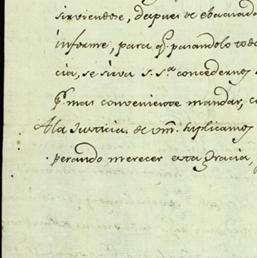 sirviendose, despues de evacuado
informe, para q.e pasandolo todo
cia, se sirva S. S.a concedernos
q.e mas conveniente mandar, co
A la Justicia de vm. suplicamos
perando merecer esta gracia,